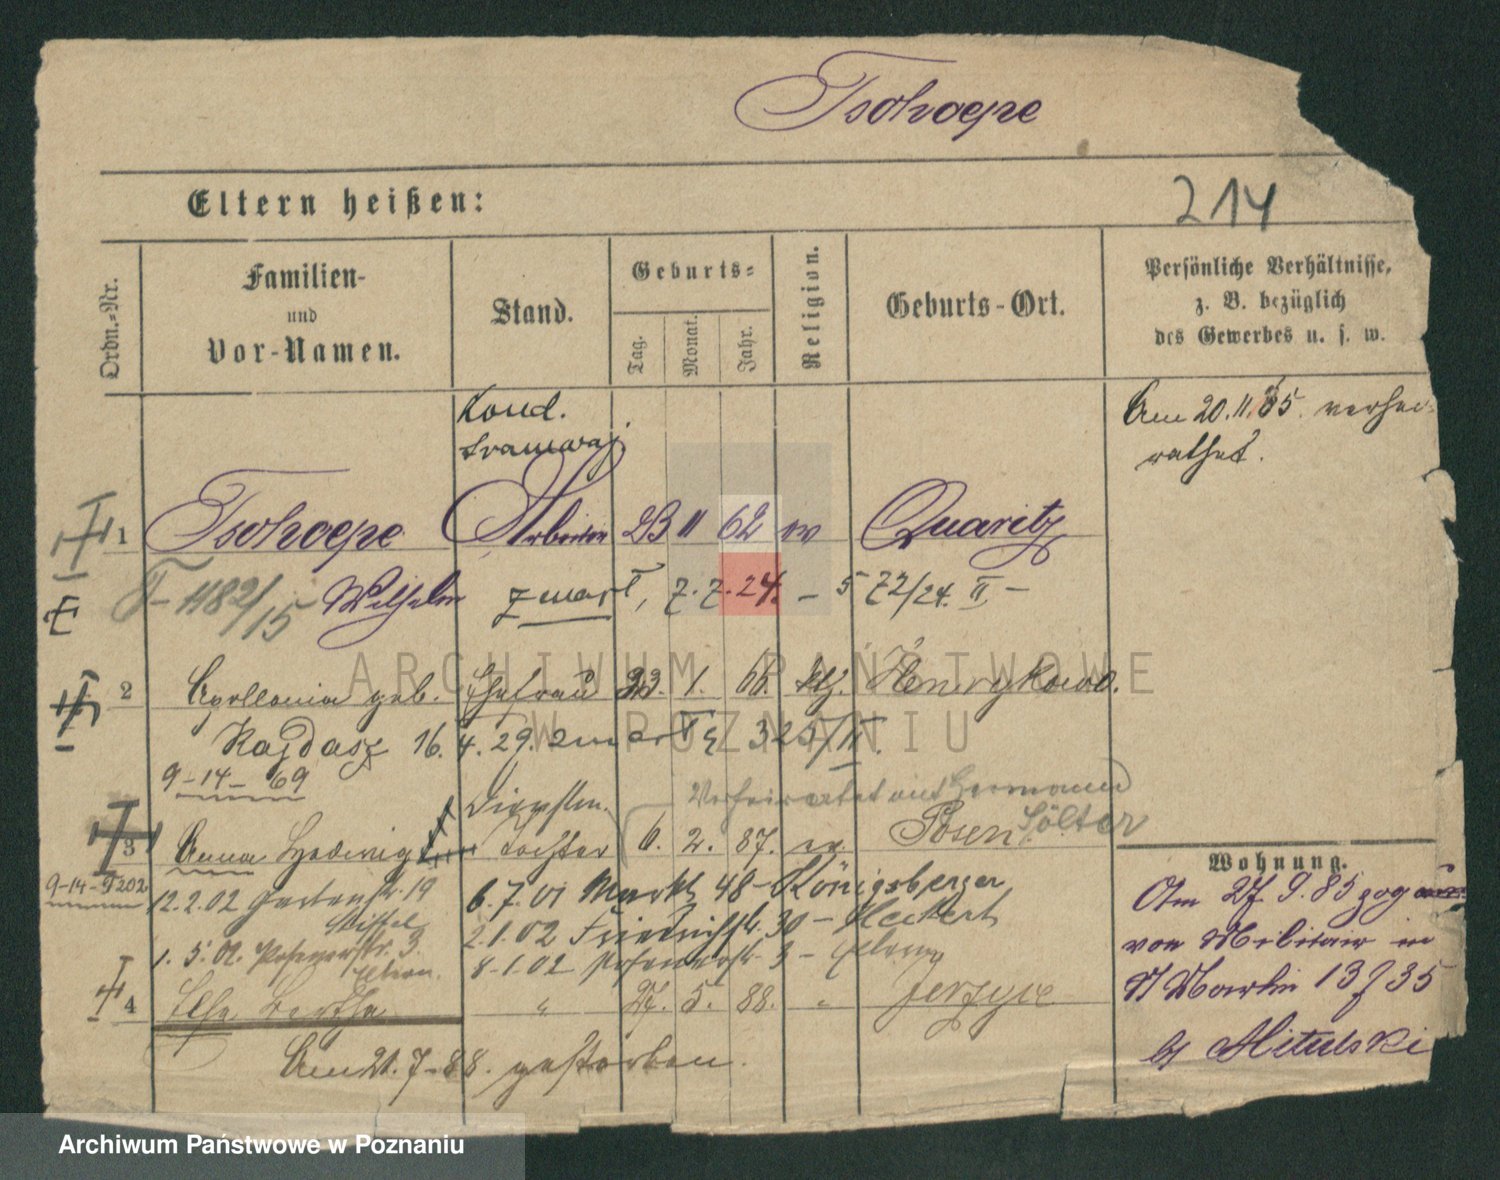 Tschoepe
214
Eltern heißen:
Ordn.-Nr.
Familien- und Vor-Namen.
Stand.
Geburts-
Tag.
Monat.
Jahr.
Religion.
Geburts-Ort.
Persönliche Verhältnisse,
z. B. bezüglich
des Gewerbes u. s. w.
Kond.
Tramwaj.
Am 20.11.85. verhei-
rathet.
1 Tschoepe Arbeiter 23 11 62 ev Quaritz
T-1182/15 Wilhelm zmarł, 7.7.24. – 572/24. II –
2 Apollonia geb. Ehefrau 23. 1. 66. kth. Henrykowo.
Kajdasz 16.4.29. zmarła 325/II.
9-14-69
Verheiratet mit Hermann
Sölter
3 Anna Hedwig Tochter 6. 2. 87. ev. Posen
9-14-F202
12.2.02 Gartenstr. 19
6.7.01 Markt 48 – Königsberger
2.1.02 Friedrichstr. 30 – Heckert
1.5.02. Posenerstr. 3.
Eltern.
8-1.02 Posenerstr 3 – Eltern
4 Else Bertha " 27. 5. 88. " Jerzyce
Am 21.7-88. gestorben.
Wohnung.
Am 27 9.85 zog
von Militair in
St Martin 13 J 35
b/ Mitulski
ARCHIWUM PAŃSTWOWE
W POZNANIU
Archiwum Państwowe w Poznaniu